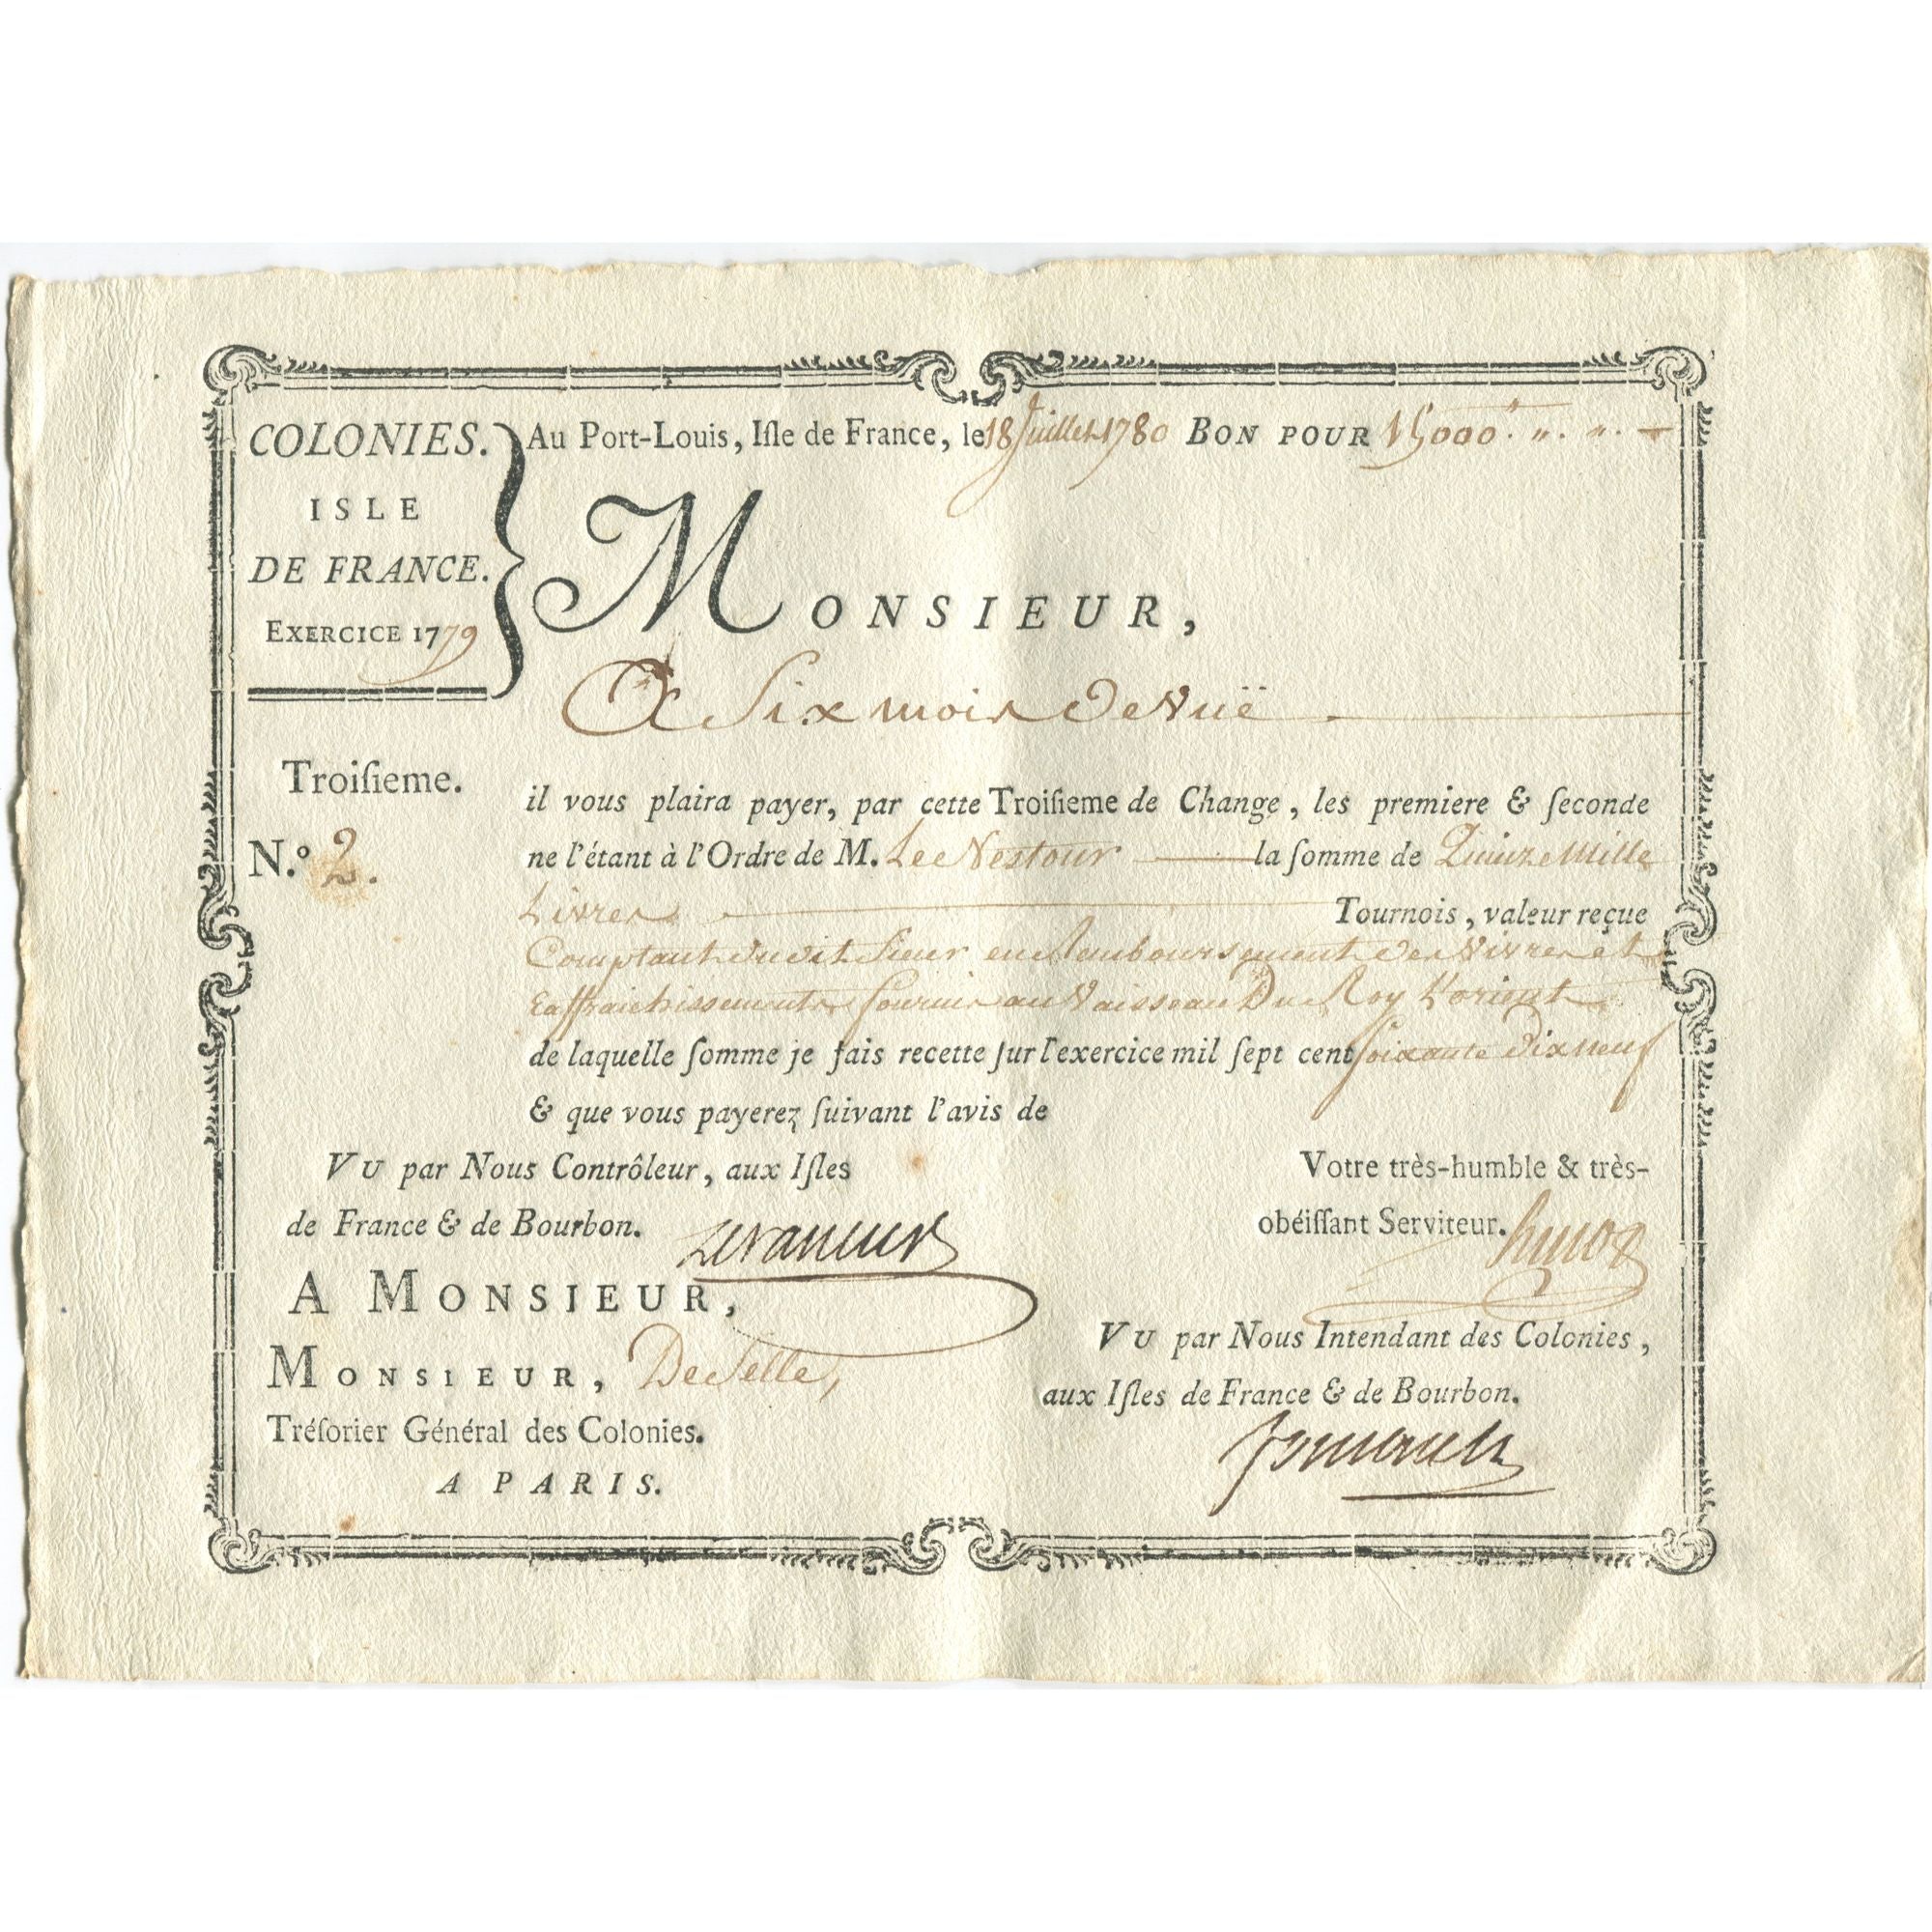 COLONIES.
ISLE
DE FRANCE.
EXERCICE 1779
Au Port-Louis, Iſle de France, le 18 Juillet 1780 BON POUR 15000.″.″.
MONSIEUR,
A Six mois De Vuë
Troiſieme.
N.º 2.
il vous plaira payer, par cette Troiſieme de Change, les premiere & ſeconde
ne l'étant à l'Ordre de M. Lee Nestour la ſomme de Quinze Mille
Livres Tournois, valeur reçue
Comptant dudit Sieur en Remboursement des Vivres et
Raffraichissements fournis au Vaisseau Du Roy L'orient
de laquelle ſomme je fais recette ſur l'exercice mil ſept cent soixante Dix neuf
& que vous payerez ſuivant l'avis de
VU par Nous Contrôleur, aux Iſles
de France & de Bourbon.
Votre très-humble & très-
obéiſſant Serviteur.
A MONSIEUR,
MONSIEUR, De Selle,
Tréſorier Général des Colonies.
A PARIS.
VU par Nous Intendant des Colonies,
aux Iſles de France & de Bourbon.